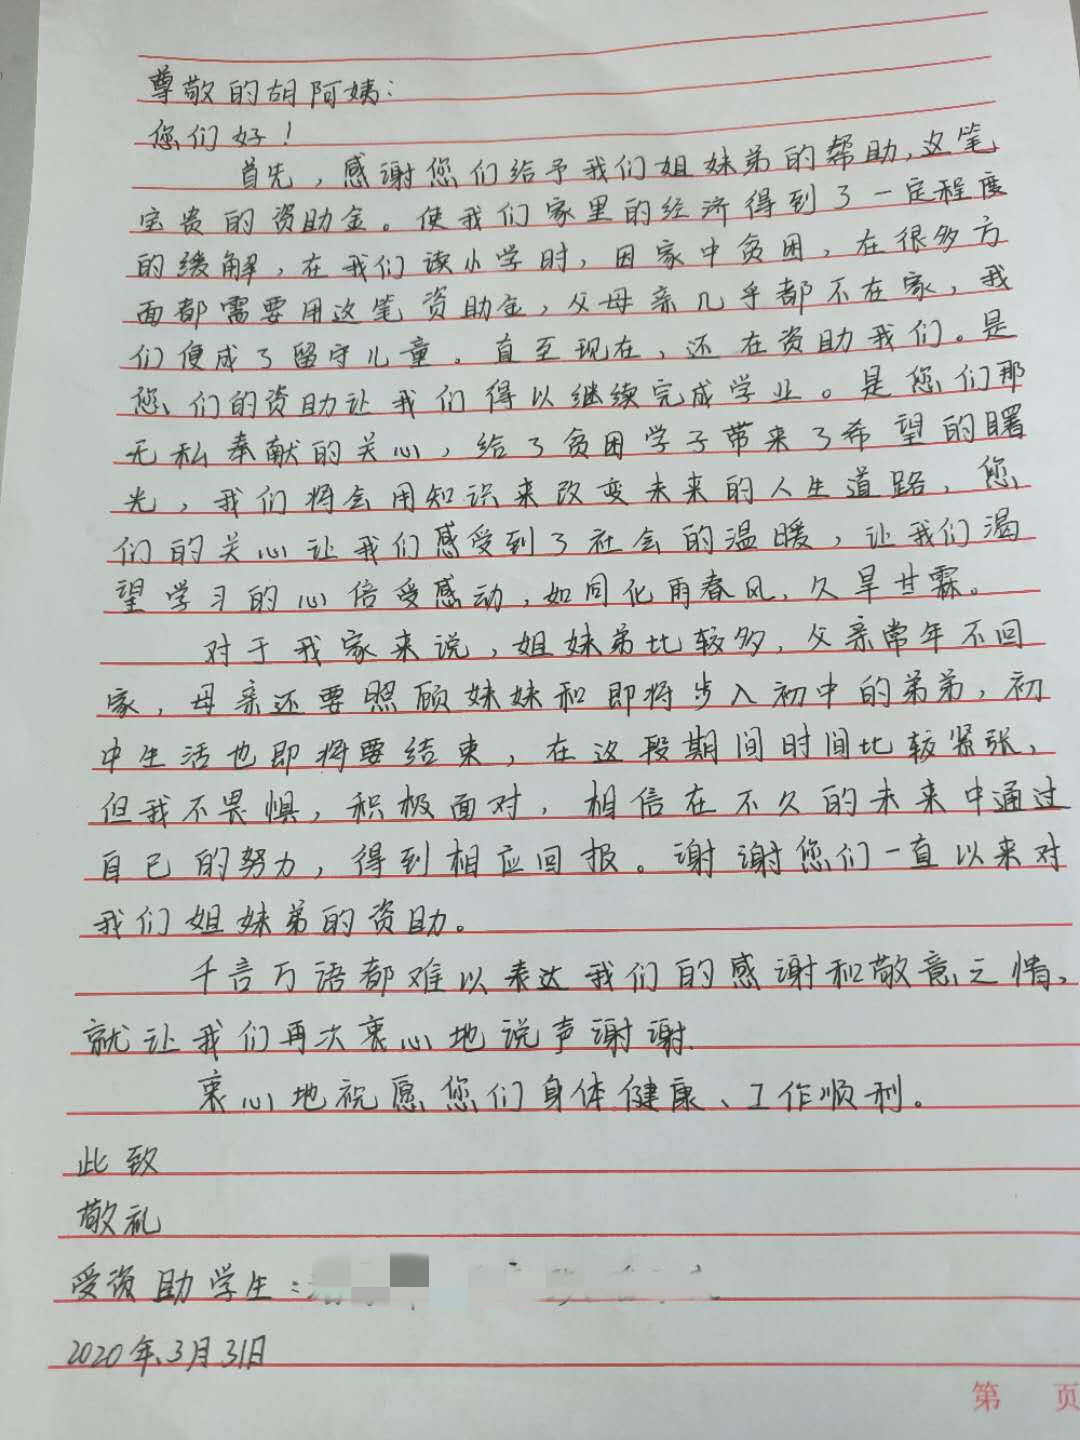 尊敬的胡阿姨：
您们好！
首先，感谢您们给予我们姐妹弟的帮助，这笔
宝贵的资助金。使我们家里的经济得到了一定程度
的缓解，在我们读小学时，因家中贫困，在很多方
面都需要用这笔资助金，父母亲几乎都不在家，我
们便成了留守儿童。直至现在，还在资助我们。是
您们的资助让我们得以继续完成学业。是您们那
无私奉献的关心，给了贫困学子带来了希望的曙
光，我们将会用知识来改变未来的人生道路，您
们的关心让我们感受到了社会的温暖，让我们渴
望学习的心倍受感动，如同化雨春风、久旱甘霖。
对于我家来说，姐妹弟比较多，父亲常年不回
家，母亲还要照顾妹妹和即将步入初中的弟弟，初
中生活也即将要结束，在这段期间时间比较紧张，
但我不畏惧，积极面对，相信在不久的未来中通过
自己的努力，得到相应回报。谢谢您们一直以来对
我们姐妹弟的资助。
千言万语都难以表达我们的感谢和敬意之情，
就让我们再次衷心地说声谢谢.
衷心地祝愿您们身体健康、工作顺利。
此致
敬礼
受资助学生：
2020年3月31日
第 页